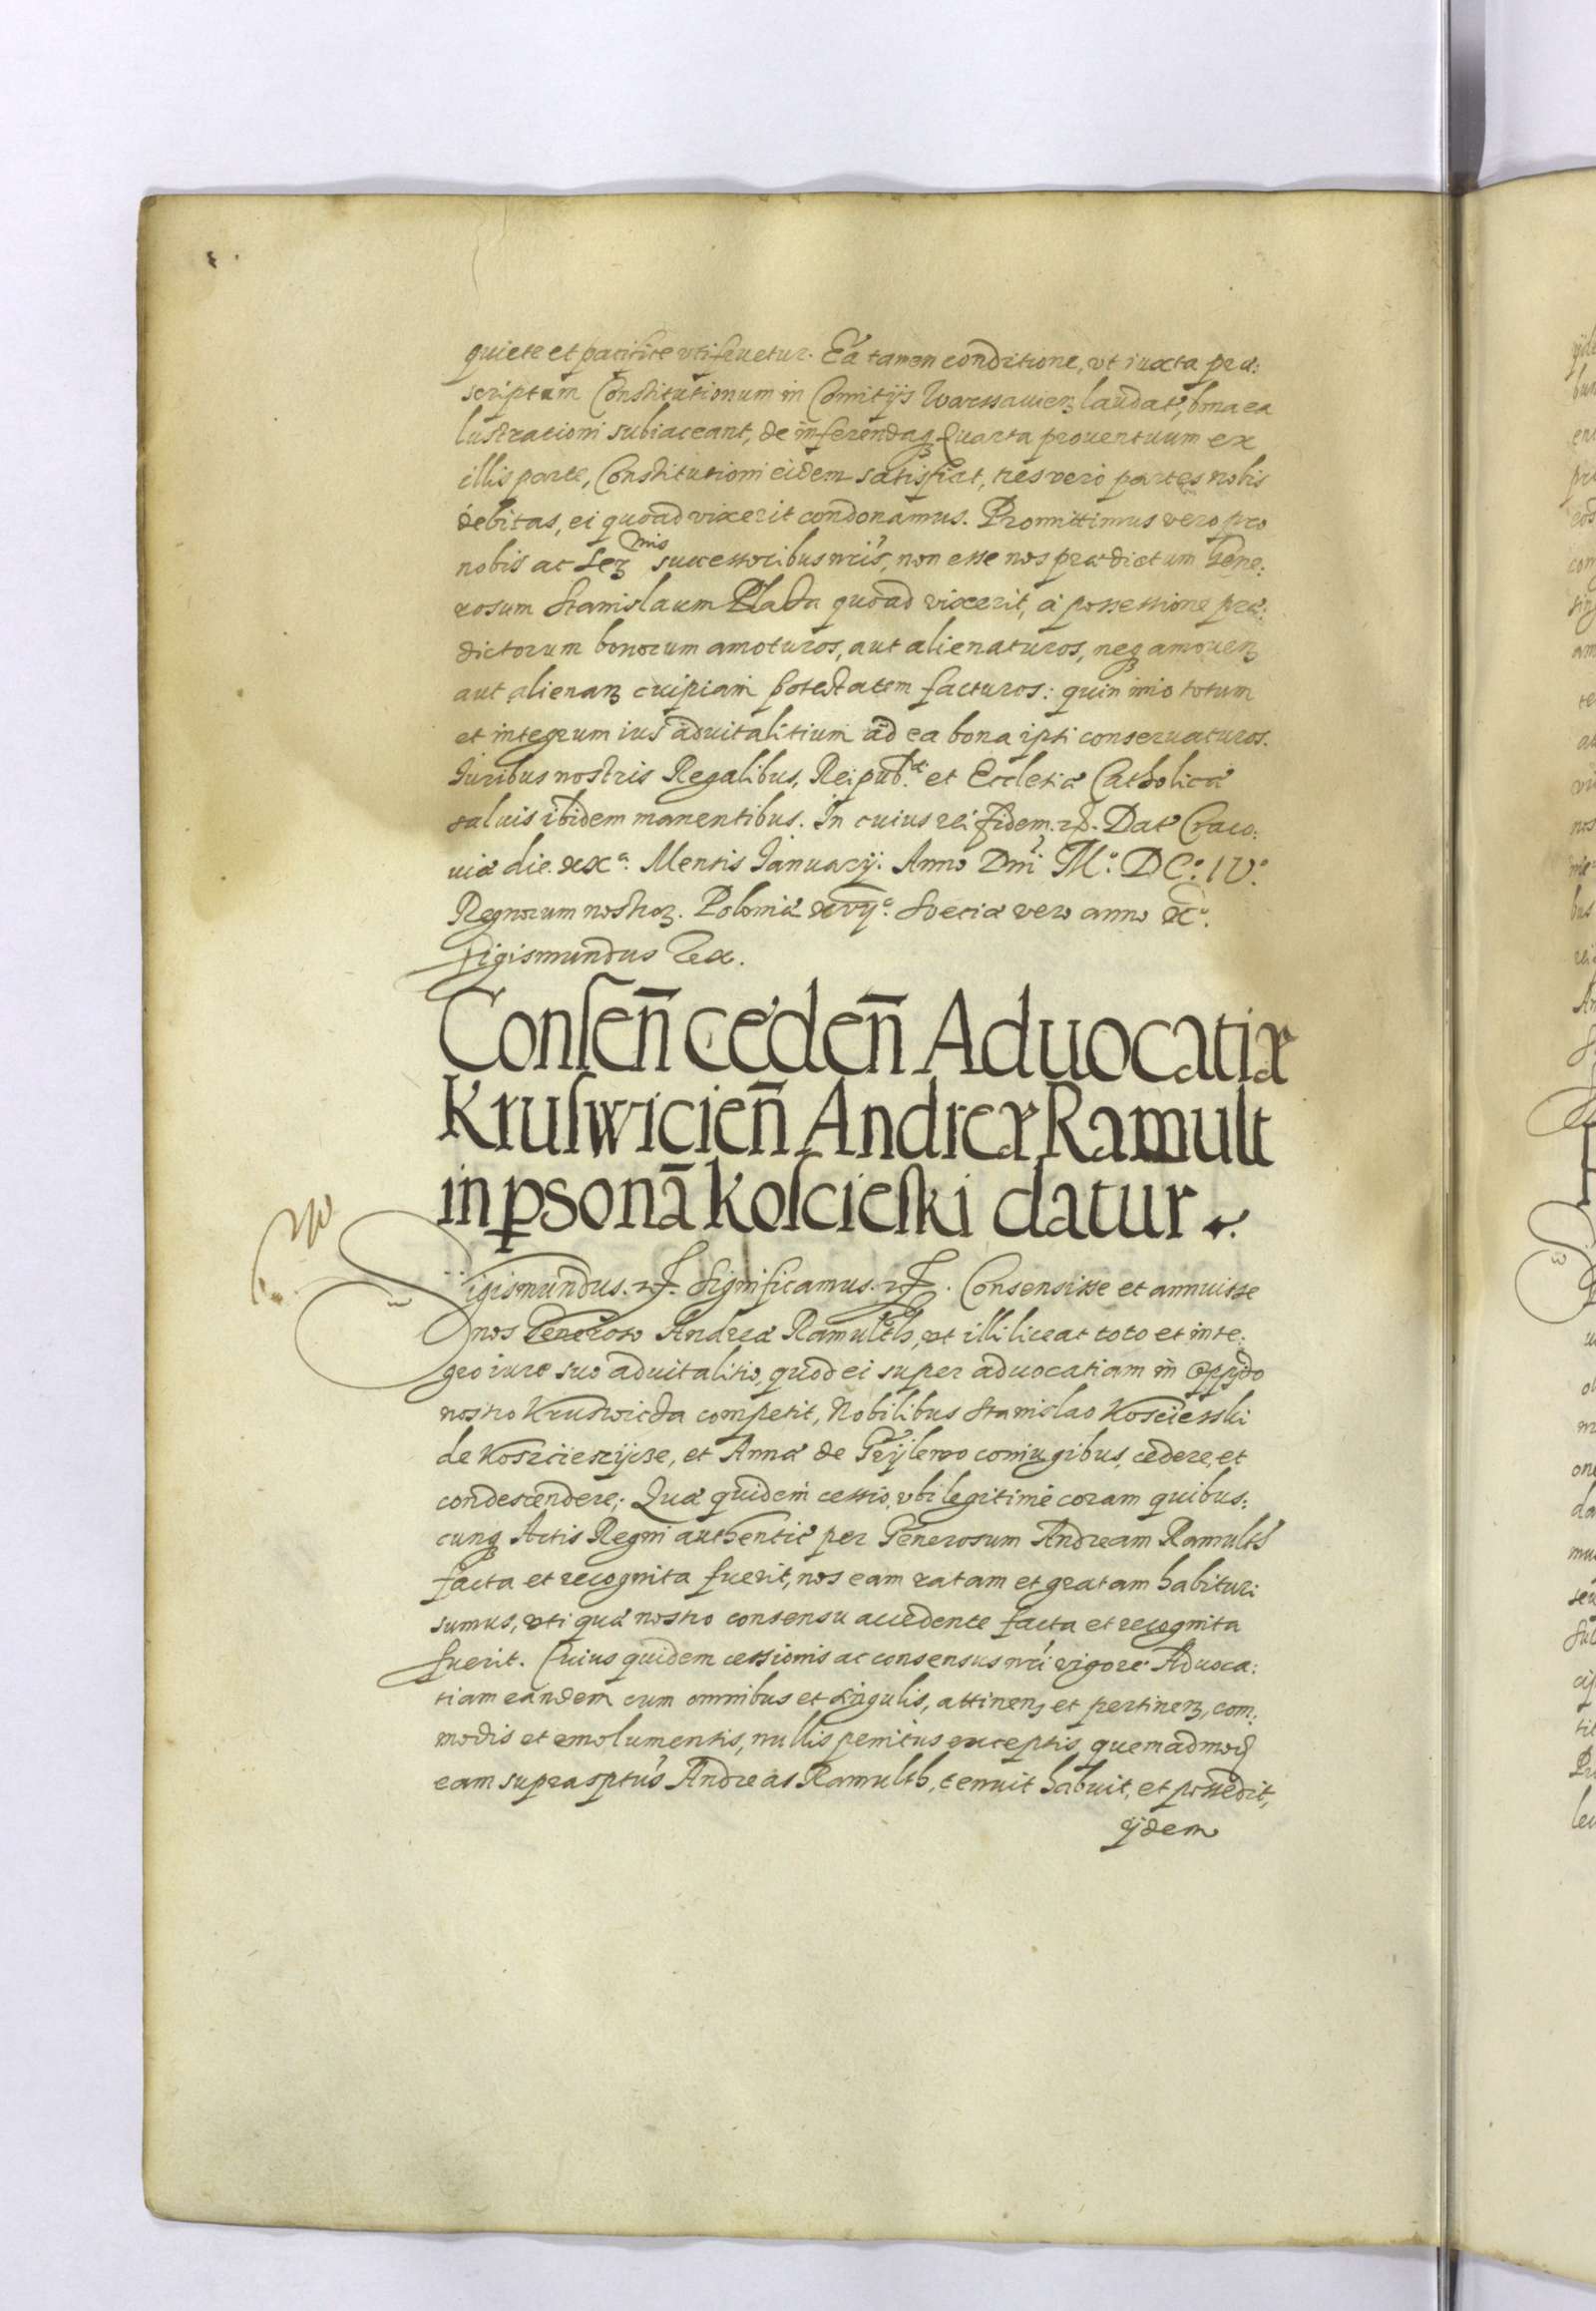 quiete et pacifice uti fruetur. Ea tamen conditione, ut iuxta præ:
scriptum Constitutionum in Comitijs Warssauienꝫ laudatꝰ, bona ea
lustrationi subiaceant, de inferendaqꝫ Quarta prouentuum ex
illis parte, Constitutioni eidem satisfiat, tres vero partes nobis
debitas, ei quoad vixerit condonamus. Promittimus vero pro
nobis ac Serꝫmis successoribus nr̃is, non esse nos prædictum Gene:
rosum Stanislaum quoad vixerit, à possessione præ:
dictorum bonorum amoturos, aut alienaturos, neqꝫ amouenꝫ
aut alienanꝫ cuipiam potestatem facturos: quin imo totum
et integrum ius aduitalitium ad ea bona ipsi conseruaturos.
Iuribus nostris Regalibus, Reipub.ᶜᵃᵉ et Ecclesiæ Catholicæ
saluis ibidem manentibus. In cuius rei fidem. ꝛc. Datꝰ Craco:
uiæ die. xxᵃ. Mensis Ianuarij. Anno Dni M.° DC.° IV.°
Regnorum nostroꝝ. Poloniæ xvijᵒ. Sueciæ vero anno xᵒ.
Sigismundus Rex.
Conſen̄ ceden̄ Aduocatiæ
Kruſwicien̄ Andreæ Ramult
in ꝑsonā Koſcieſki datur
Sigismundus. ꝛc. Significamus. ꝛc. Consensisse et annuisse
nos Generoso Andreæ Ramulth, ut illi liceat toto et inte:
gro iure suo aduitalitio, quod ei super aduocatiam in oppido
nostro Kruswicka competit, Nobilibus Stanislao Kościesski
de et Annæ de coniugibus, cedere, et
condescendere; Quæ quidem cessio, ubi legitimè coram quibus:
cunqꝫ Actis Regni authenticꝰ per Generosum Andream Ramulth
facta et recognita fuerit, nos eam ratam et gratam habituri
sumus, uti quæ nostro consensu accedente facta et recognita
fuerit. Cuius quidem cessionis ac consensus nr̃i vigore Aduoca:
tiam eandem cum omnibus et singulis, attinenꝫ et pertinenꝫ, com:
modis et emolumentis, nullis penitus exceptis, quemadmod
eam suprasptus Andreas Ramulth, tenuit habuit, et possedit,
ijdem